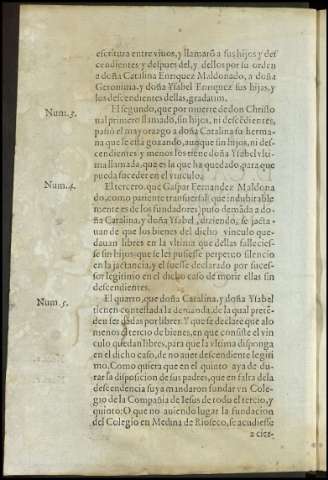 escritura entre viuos, y llamarõ a sus hijos y des
cendientes y despues del, y dellos por su orden
a doña Catalina Enriquez Maldonado, a doña
Geronima, y doña Ysabel Enriquez sus hijas, y
los descendientes dellas, gradatim.
Num. 3. El segundo, que por muerte de don Christo
ual primero llamado, sin hijos, ni descẽdientes,
passò el mayorazgo a doña Catalina su herma
na que se està gozando, aunque sin hijos, ni des-
cendientes y menos los tiene doña Ysabel vlti
ma llamada, que es la que ha quedado, para que
pueda suceder en el vinculo.
Num. 4. El tercero, que Gaspar Fernandez Maldona
do, como pariente transuersal (que indubitable
mente es de los fundadores) puso demãda a do
ña Catalina, y doña Ysabel, diziendo, se jacta-
uan de que los bienes del dicho vinculo que-
dauan libres en la vltima que dellas falleciesse
sin hijos: que se les pusiesse perpetuo silencio
en la jactancia, y el fuesse declarado por suces-
sor legitimo en el dicho caso de morir ellas sin
descendientes.
Num. 5. El quarto, que doña Catalina, y doña Ysabel
tienen contestada la demanda, de la qual pretẽ
den ser dadas por libres: Y que se declare que alo
menos el tercio de bienes, en que consiste el vin
culo quedan libres, para que la vltima disponga
en el dicho caso, de no auer descendiente legiti
mo. Como quiera que en el quinto aya de du-
rar la disposicion de sus padres, que en falta de la
descendencia suya mandaron fundar vn Cole-
gio de la Compañia de Iesus de todo el tercio, y
quinto: O que no auiendo lugar la fundacion
del Colegio en Medina de Rioseco, se acudiesse
a cier-